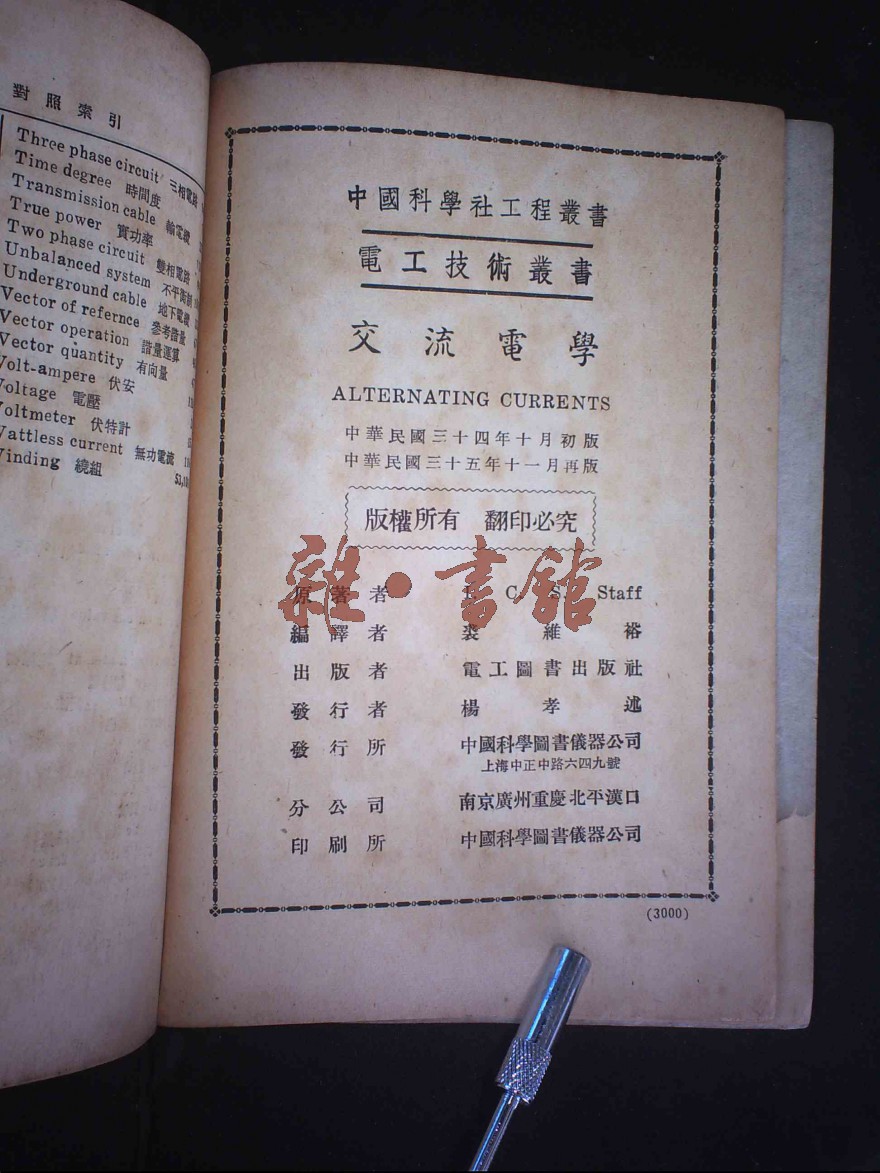 對照索引
Three phase circuit 三相電路
Time degree 時間度
Transmission cable 輸電纜
True power 實功率
Two phase circuit 雙相電路
Unbalanced system 不平衡制
Underground cable 地下電纜
Vector of refernce 參考諳量
Vector operation 諳量運算
Vector quantity 有向量
Volt-ampere 伏安
Voltage 電壓
Voltmeter 伏特計
Wattless current 無功電流
Winding 繞組
中國科學社工程叢書
電工技術叢書
交流電學
ALTERNATING CURRENTS
中華民國三十四年十月初版
中華民國三十五年十一月再版
版權所有 翻印必究
雜·書館
原著者 I. C. S. Staff
編譯者 裘維裕
出版者 電工圖書出版社
發行者 楊孝述
發行所 中國科學圖書儀器公司
上海中正中路六四九號
分公司 南京廣州重慶北平漢口
印刷所 中國科學圖書儀器公司
(3000)